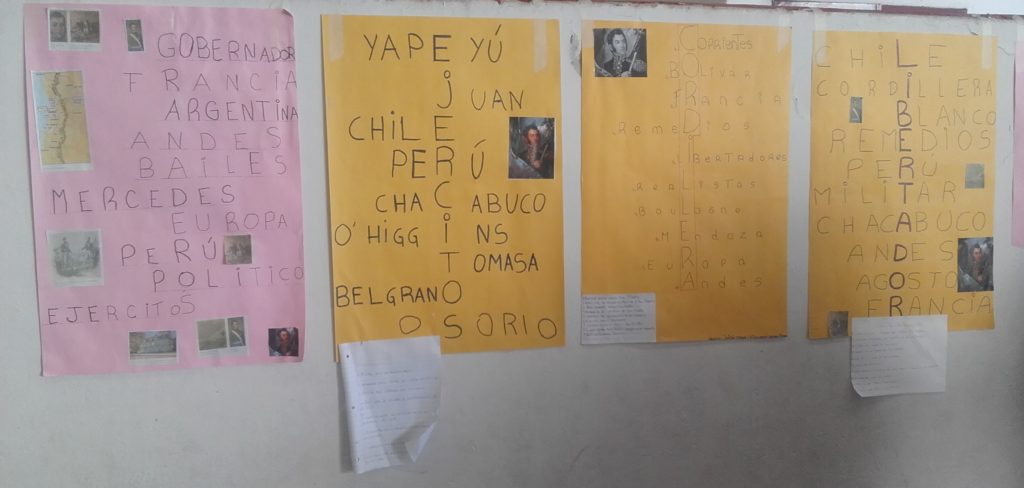 GOBERNADOR
FRANCIA
ARGENTINA
ANDES
BAILES
MERCEDES
EUROPA
PERÚ
POLÍTICO
EJERCITOS
YAPEYÚ
JUAN
CHILE
PERÚ
CHACABUCO
O'HIGGINS
TOMASA
BELGRANO
OSORIO
Corrientes
BOlivar
FRancia
RemeDios
LibertadoRes
Realistas
Boulogne
MEndoza
EuRopa
Andes
CHILE
CORDILLERA
BLANCO
REMEDIOS
PERÚ
MILITAR
CHACABUCO
ANDES
AGOSTO
FRANCIA